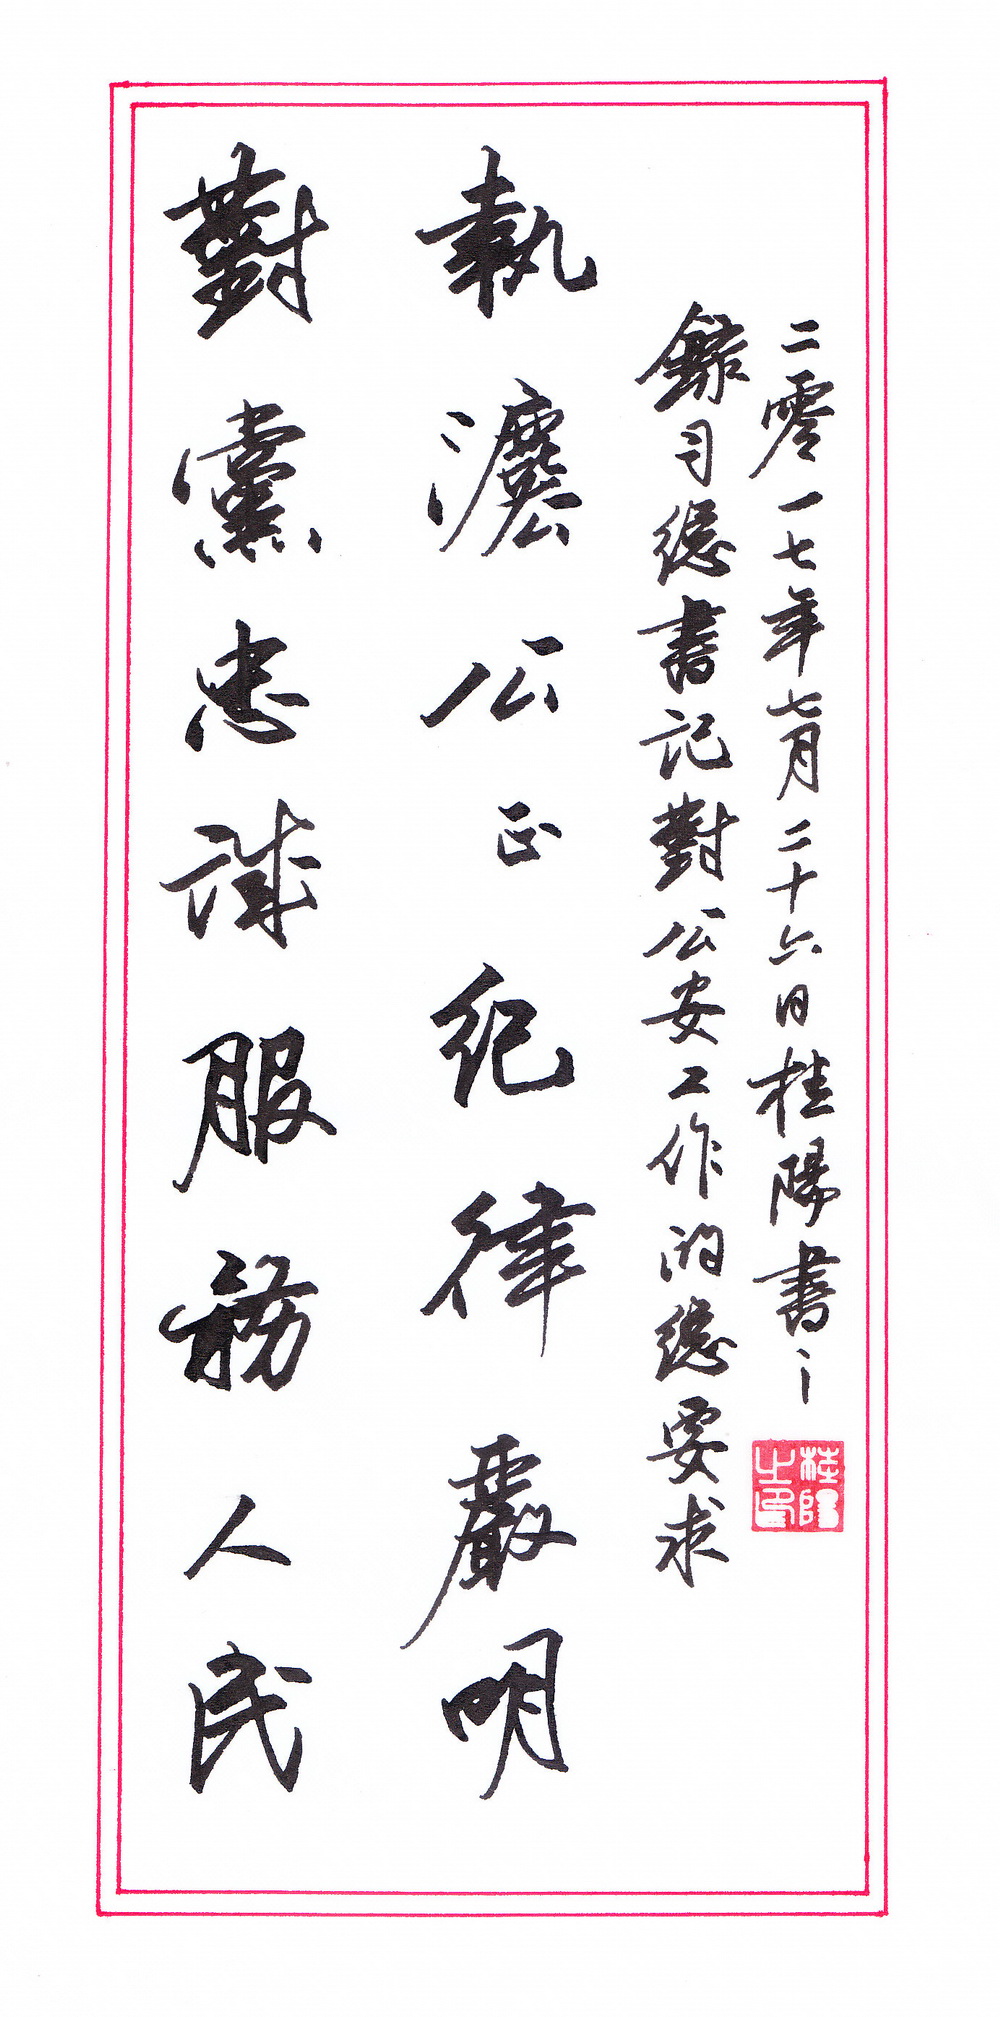 對黨忠誠服務人民
執灋公正紀律嚴明
錄习總書記對公安工作的總要求
二零一七年七月二十六日桂陽書
桂陽之印